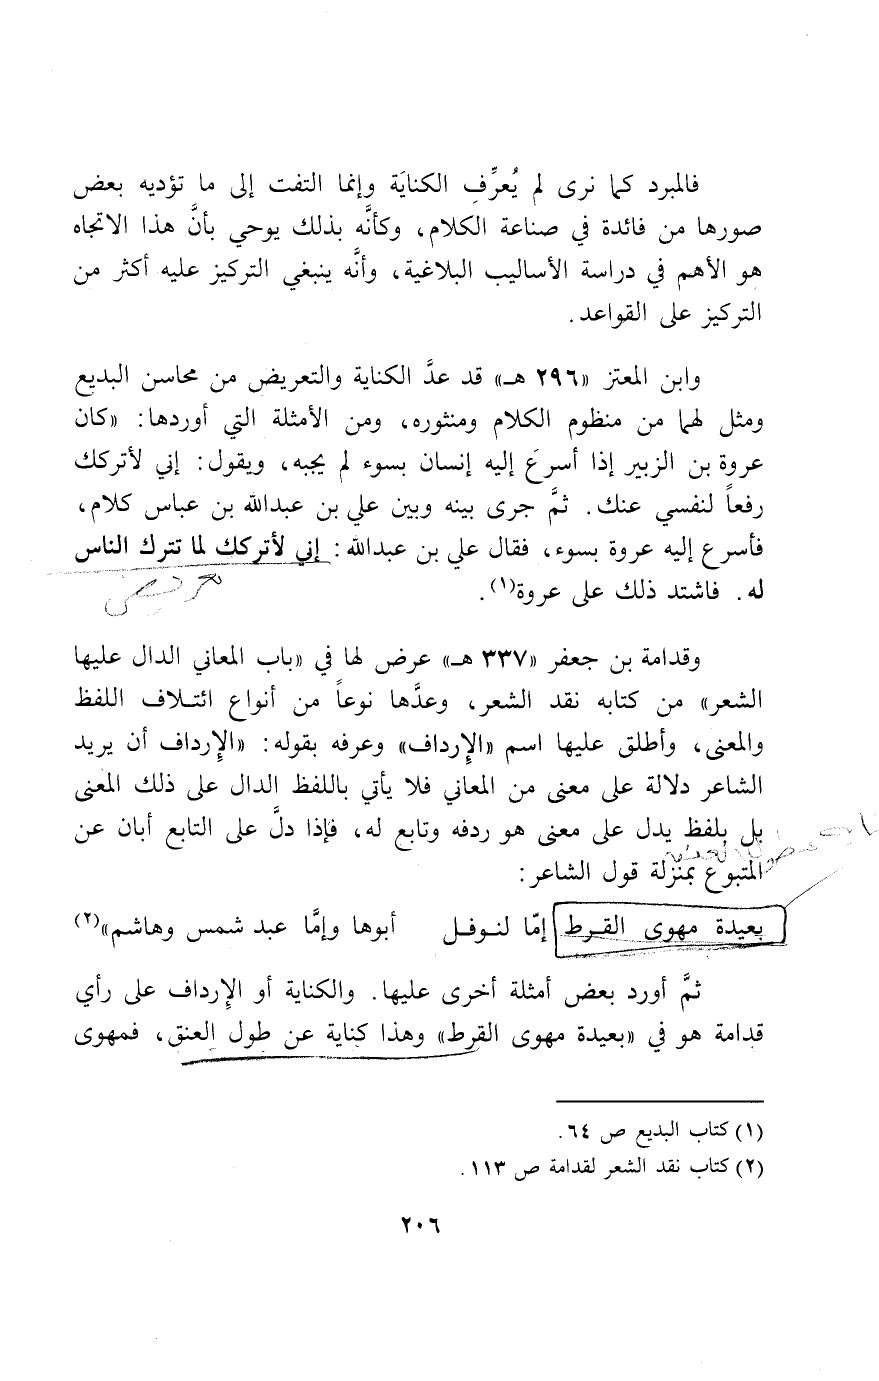 فالمبرد كما نرى لم يُعرِّف الكنايَة وإنما التفت إلى ما تؤديه بعض
صورها من فائدة في صناعة الكلام، وكأنَّه بذلك يوحي بأنَّ هذا الاتجاه
هو الأهم في دراسة الأساليب البلاغية، وأنَّه ينبغي التركيز عليه أكثر من
التركيز على القواعد.
وابن المعتز «٢٩٦ هـ» قد عدَّ الكناية والتعريض من محاسن البديع
ومثل لهما من منظوم الكلام ومنثوره، ومن الأمثلة التي أوردها: «كان
عروة بن الزبير إذا أسرعَ إليه إنسان بسوء لم يجبه، ويقول: إني لأتركك
رفعاً لنفسي عنك. ثمَّ جرى بينه وبين علي بن عبدالله بن عباس كلام،
فأسرع إليه عروة بسوء، فقال علي بن عبدالله: إني لأتركك لما تترك الناس
له. فاشتد ذلك على عروة(١).
تعريض
وقدامة بن جعفر «٣٣٧ هـ» عرض لها في «باب المعاني الدال عليها
الشعر» من كتابه نقد الشعر، وعدَّها نوعاً من أنواع ائتلاف اللفظ
والمعنى، وأطلق عليها اسم «الإرداف» وعرفه بقوله: «الإرداف أن يريد
الشاعر دلالة على معنى من المعاني فلا يأتي باللفظ الدال على ذلك المعنى
بل بلفظ يدل على معنى هو ردفه وتابع له، فإذا دلَّ على التابع أبان عن
المتبوع بمنزلة قول الشاعر:
بعيدة مهوى القرط إمّا لنوفل أبوها وإمَّا عبد شمس وهاشم»(٢)
ثمَّ أورد بعض أمثلة أخرى عليها. والكناية أو الإرداف على رأي
قدامة هو في «بعيدة مهوى القرط» وهذا كناية عن طول العنق، فمهوى
(١) كتاب البديع ص ٦٤.
(٢) كتاب نقد الشعر لقدامة ص ١١٣.
٢٠٦